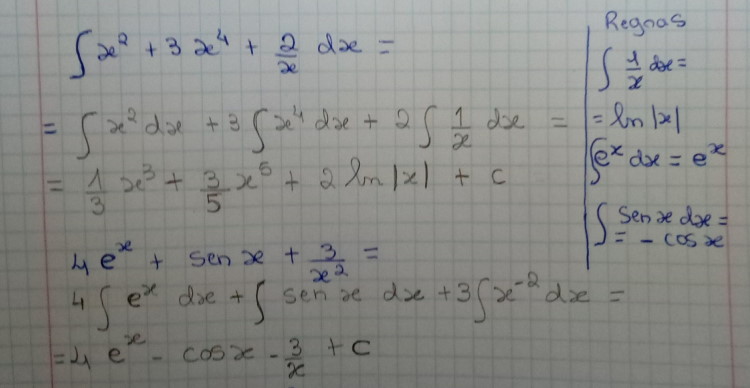 ∫ x² + 3x⁴ + 2/x dx =
= ∫ x² dx + 3∫ x⁴ dx + 2∫ 1/x dx =
= 1/3 x³ + 3/5 x⁵ + 2 ln|x| + c
4e^x + sen x + 3/x² =
4∫ e^x dx + ∫ sen x dx + 3∫ x⁻² dx =
= 4e^x - cos x - 3/x + c
Regras
∫ 1/x dx =
= ln|x|
∫ e^x dx = e^x
∫ sen x dx =
= - cos x